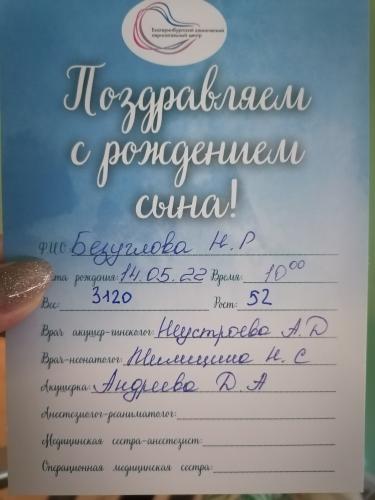 Екатеринбургский клинический
перинатальный центр
Поздравляем
с рождением
сына!
ФИО: Безуглова Н.Р
Дата рождения: 14.05.22 Время: 10⁰⁰
Вес: 3120 Рост: 52
Врач акушер-гинеколог: Неустроева А.Д
Врач-неонатолог: Н. С
Акушерка: Андреева Д. А
Анестезиолог-реаниматолог:
Медицинская сестра-анестезист:
Операционная медицинская сестра: